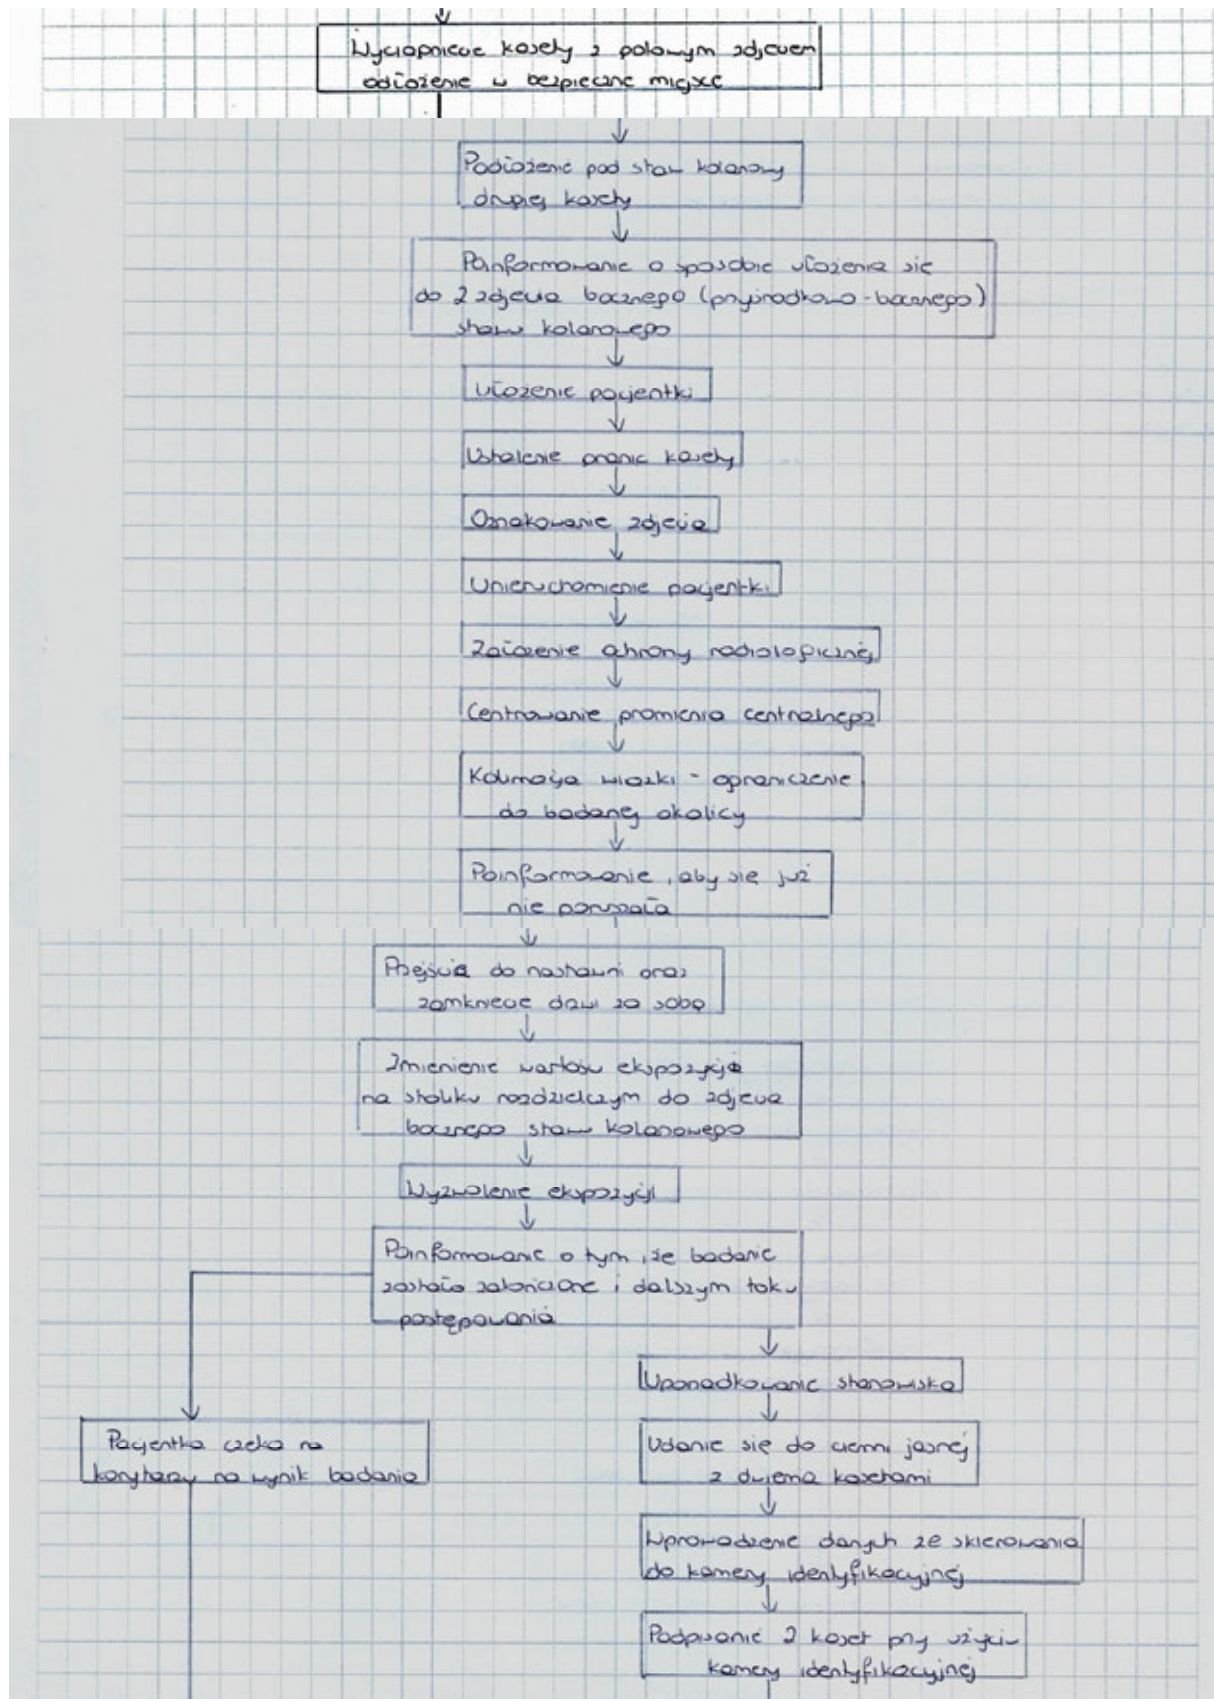 Wyciągnięcie kasety z polowym zdjęciem
odłożenie w bezpieczne miejsce
Podłożenie pod staw kolanowy
drugiej kasety
Poinformowanie o sposobie ułożenia się
do 2 zdjęcia bocznego (przyśrodkowo-bocznego)
stawu kolanowego
Ułożenie pacjentki
Ustalenie granic kasety
Oznakowanie zdjęcia
Unieruchomienie pacjentki
Założenie ochrony radiologicznej
Centrowanie promienia centralnego
Kolimacja wiązki - ograniczenie
do badanej okolicy
Poinformowanie, aby się już
nie poruszała
Przejście do nastawni oraz
zamknięcie drzwi za sobą
Zmienienie wartości ekspozycji
na stoliku rozdzielczym do zdjęcia
bocznego stawu kolanowego
Wyzwolenie ekspozycji
Poinformowanie o tym, że badanie
zostało zakończone i dalszym toku
postępowania
Uporządkowanie stanowiska
Pacjentka czeka na
korytarzu na wynik badania
Udanie się do ciemni jasnej
z dwiema kasetami
Wprowadzenie danych ze skierowania
do kamery identyfikacyjnej
Podpisanie 2 kaset przy użyciu
kamery identyfikacyjnej